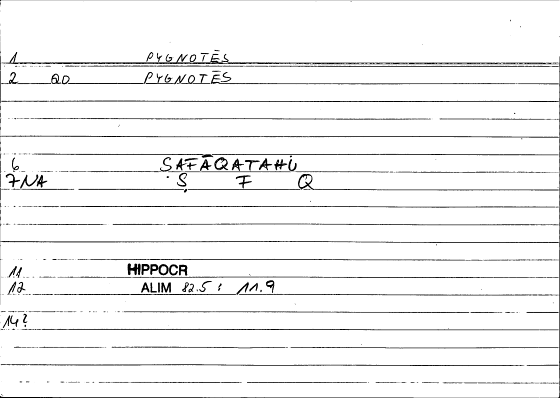 1 PYGNOTĒS
2 QO PYGNOTĒS
6 ṢAFĀQATAHŪ
7 NA Ṣ F Q
11 HIPPOCR
12 ALIM 82.5 : 11.9
14?